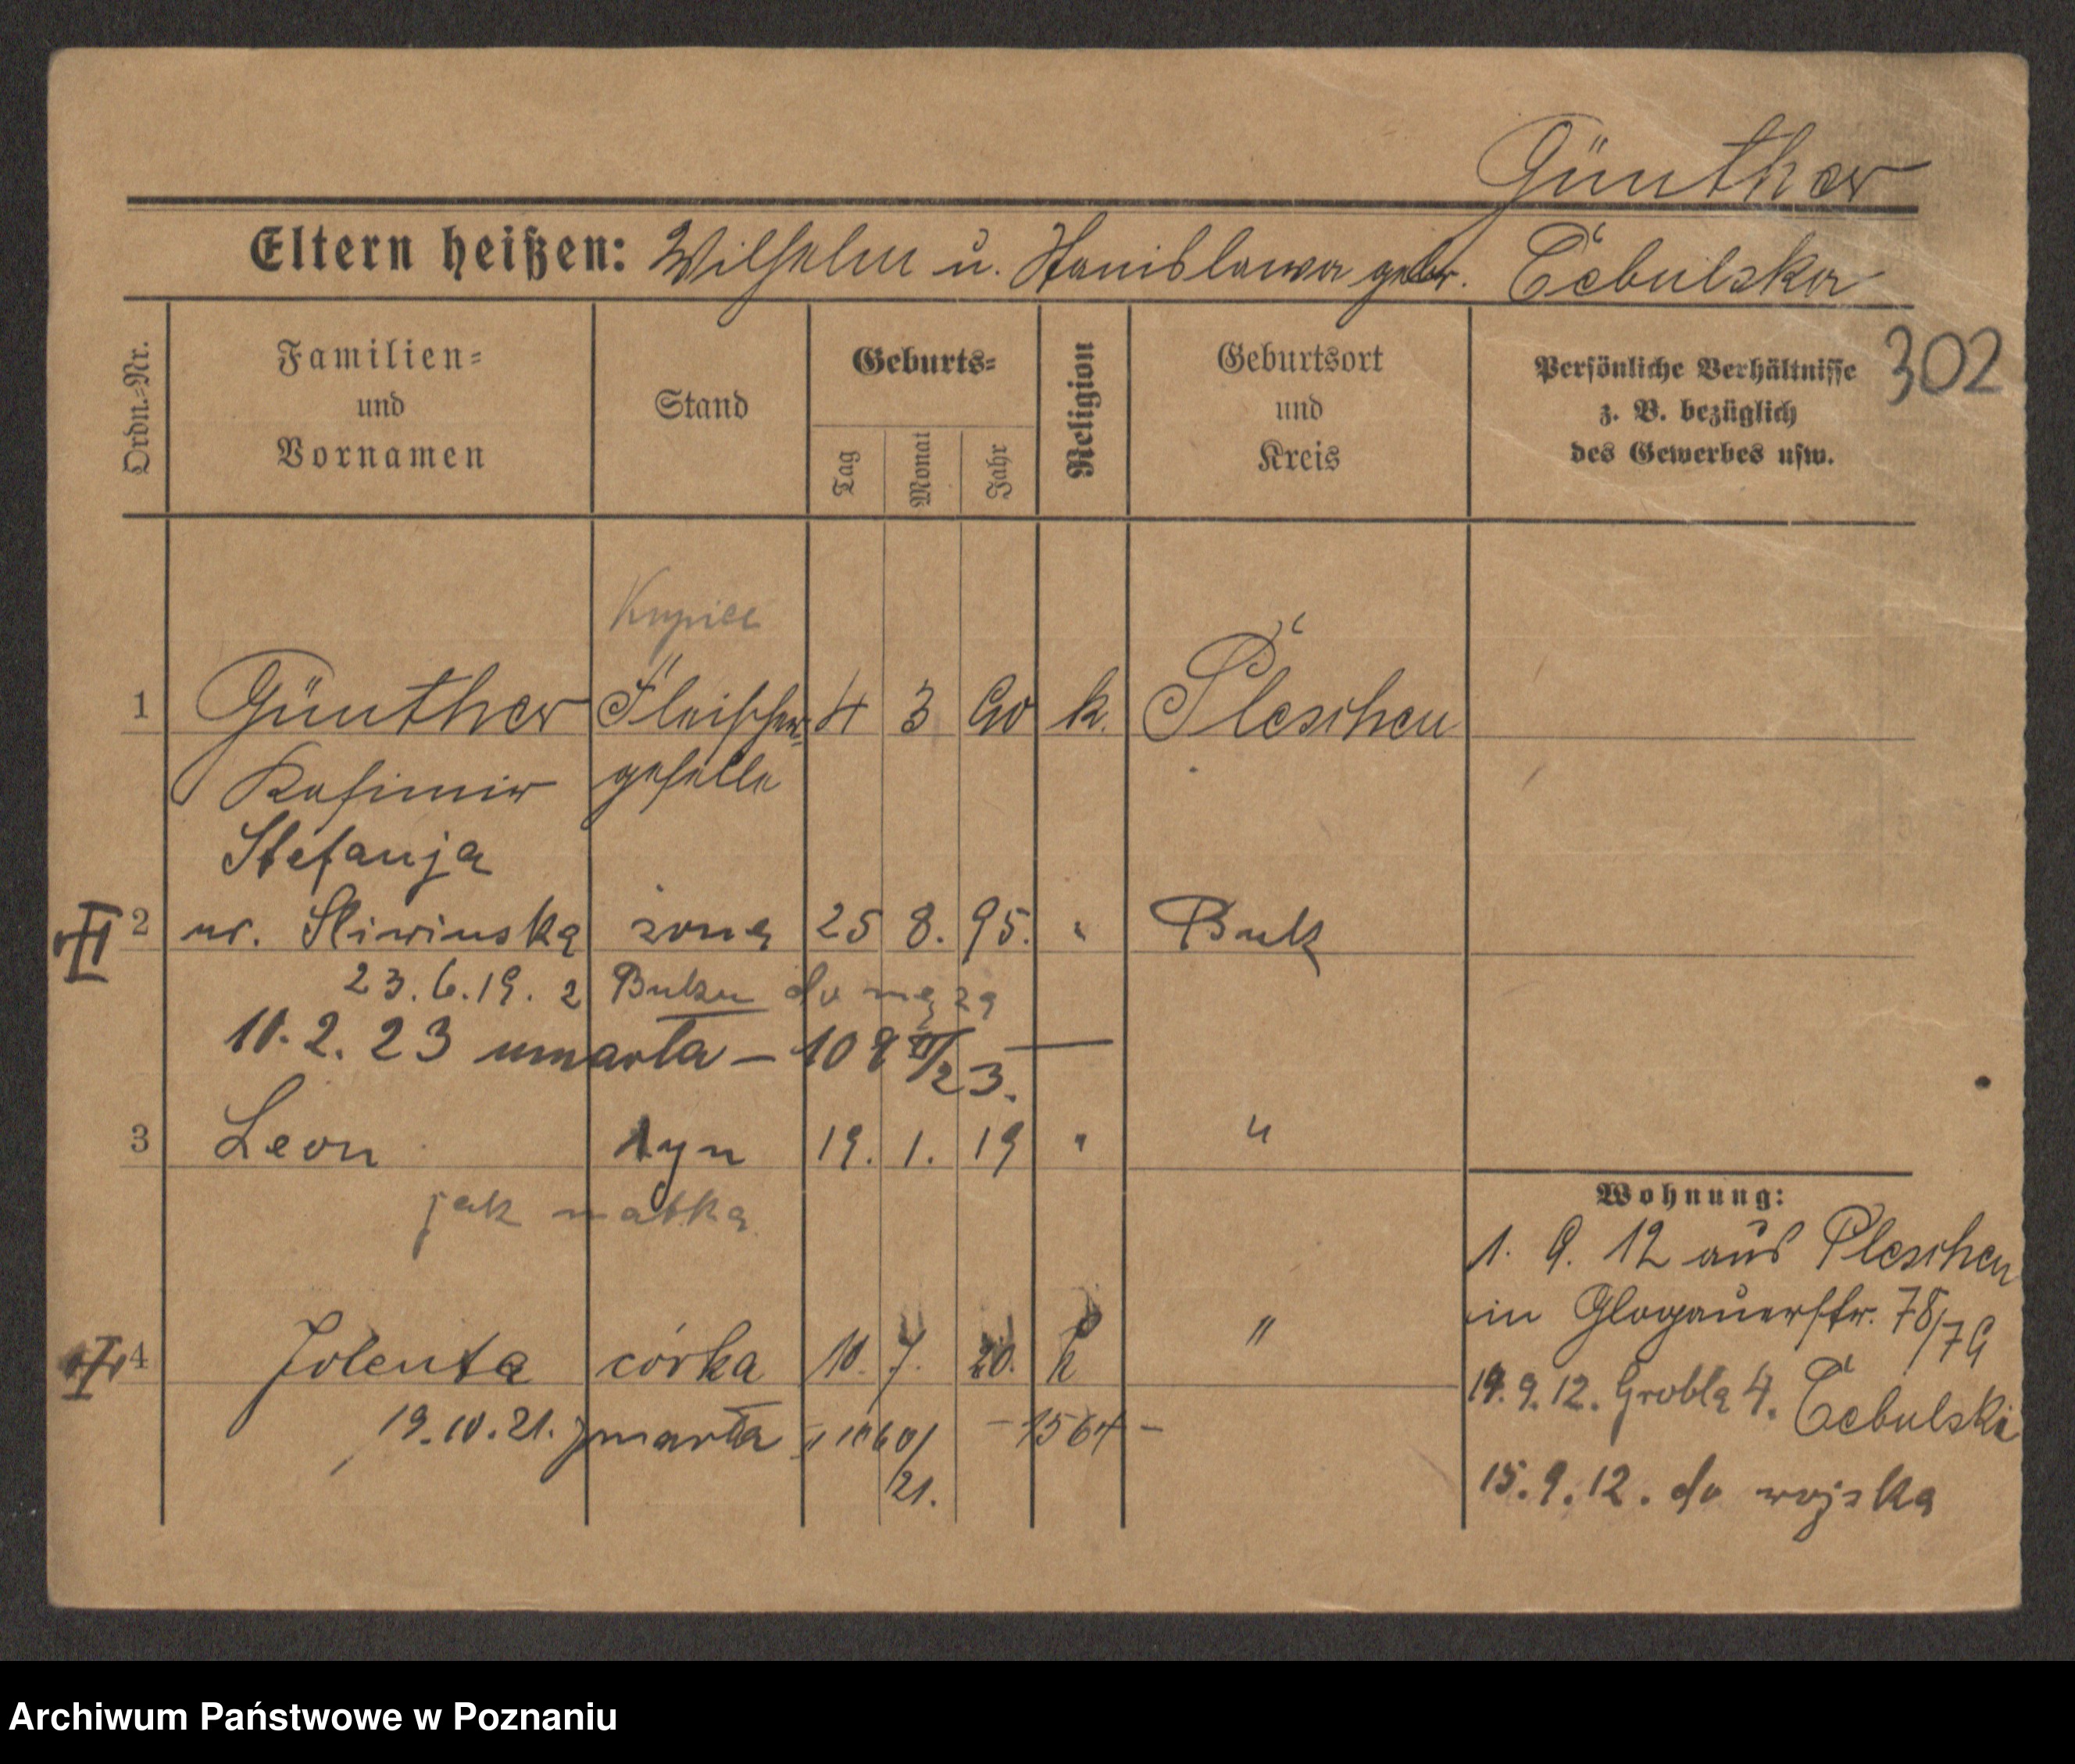 Günther
Eltern heißen: Wilhelm u. Stanislawa gebr. Cebulska
302
Ordn.=Nr.
Familien= und Vornamen
Stand
Geburts=
Tag
Monat
Jahr
Religion
Geburtsort und Kreis
Persönliche Verhältnisse z. B. bezüglich des Gewerbes usw.
Kupiec
1 Günther Fleischer= 4 3 90 k. Pleschen
Kasimir geselle
Stefanja
2 ur. Sliwinska żona 25 8. 95. " Buk
23.6.19. z Buku do męża
10.2.23 umarła – 108 II/23. —
3 Leon syn 19. 1. 19 " "
jak matka
4 Jolenta córka 10. 7. 20. k "
19.10.21. umarła 21. – 1564 –
Wohnung:
1. 9. 12 aus Pleschen
in Glogauerstr. 78/79
14.9.12. Grobla 4. Cebulski
15.9.12. do wojska
Archiwum Państwowe w Poznaniu